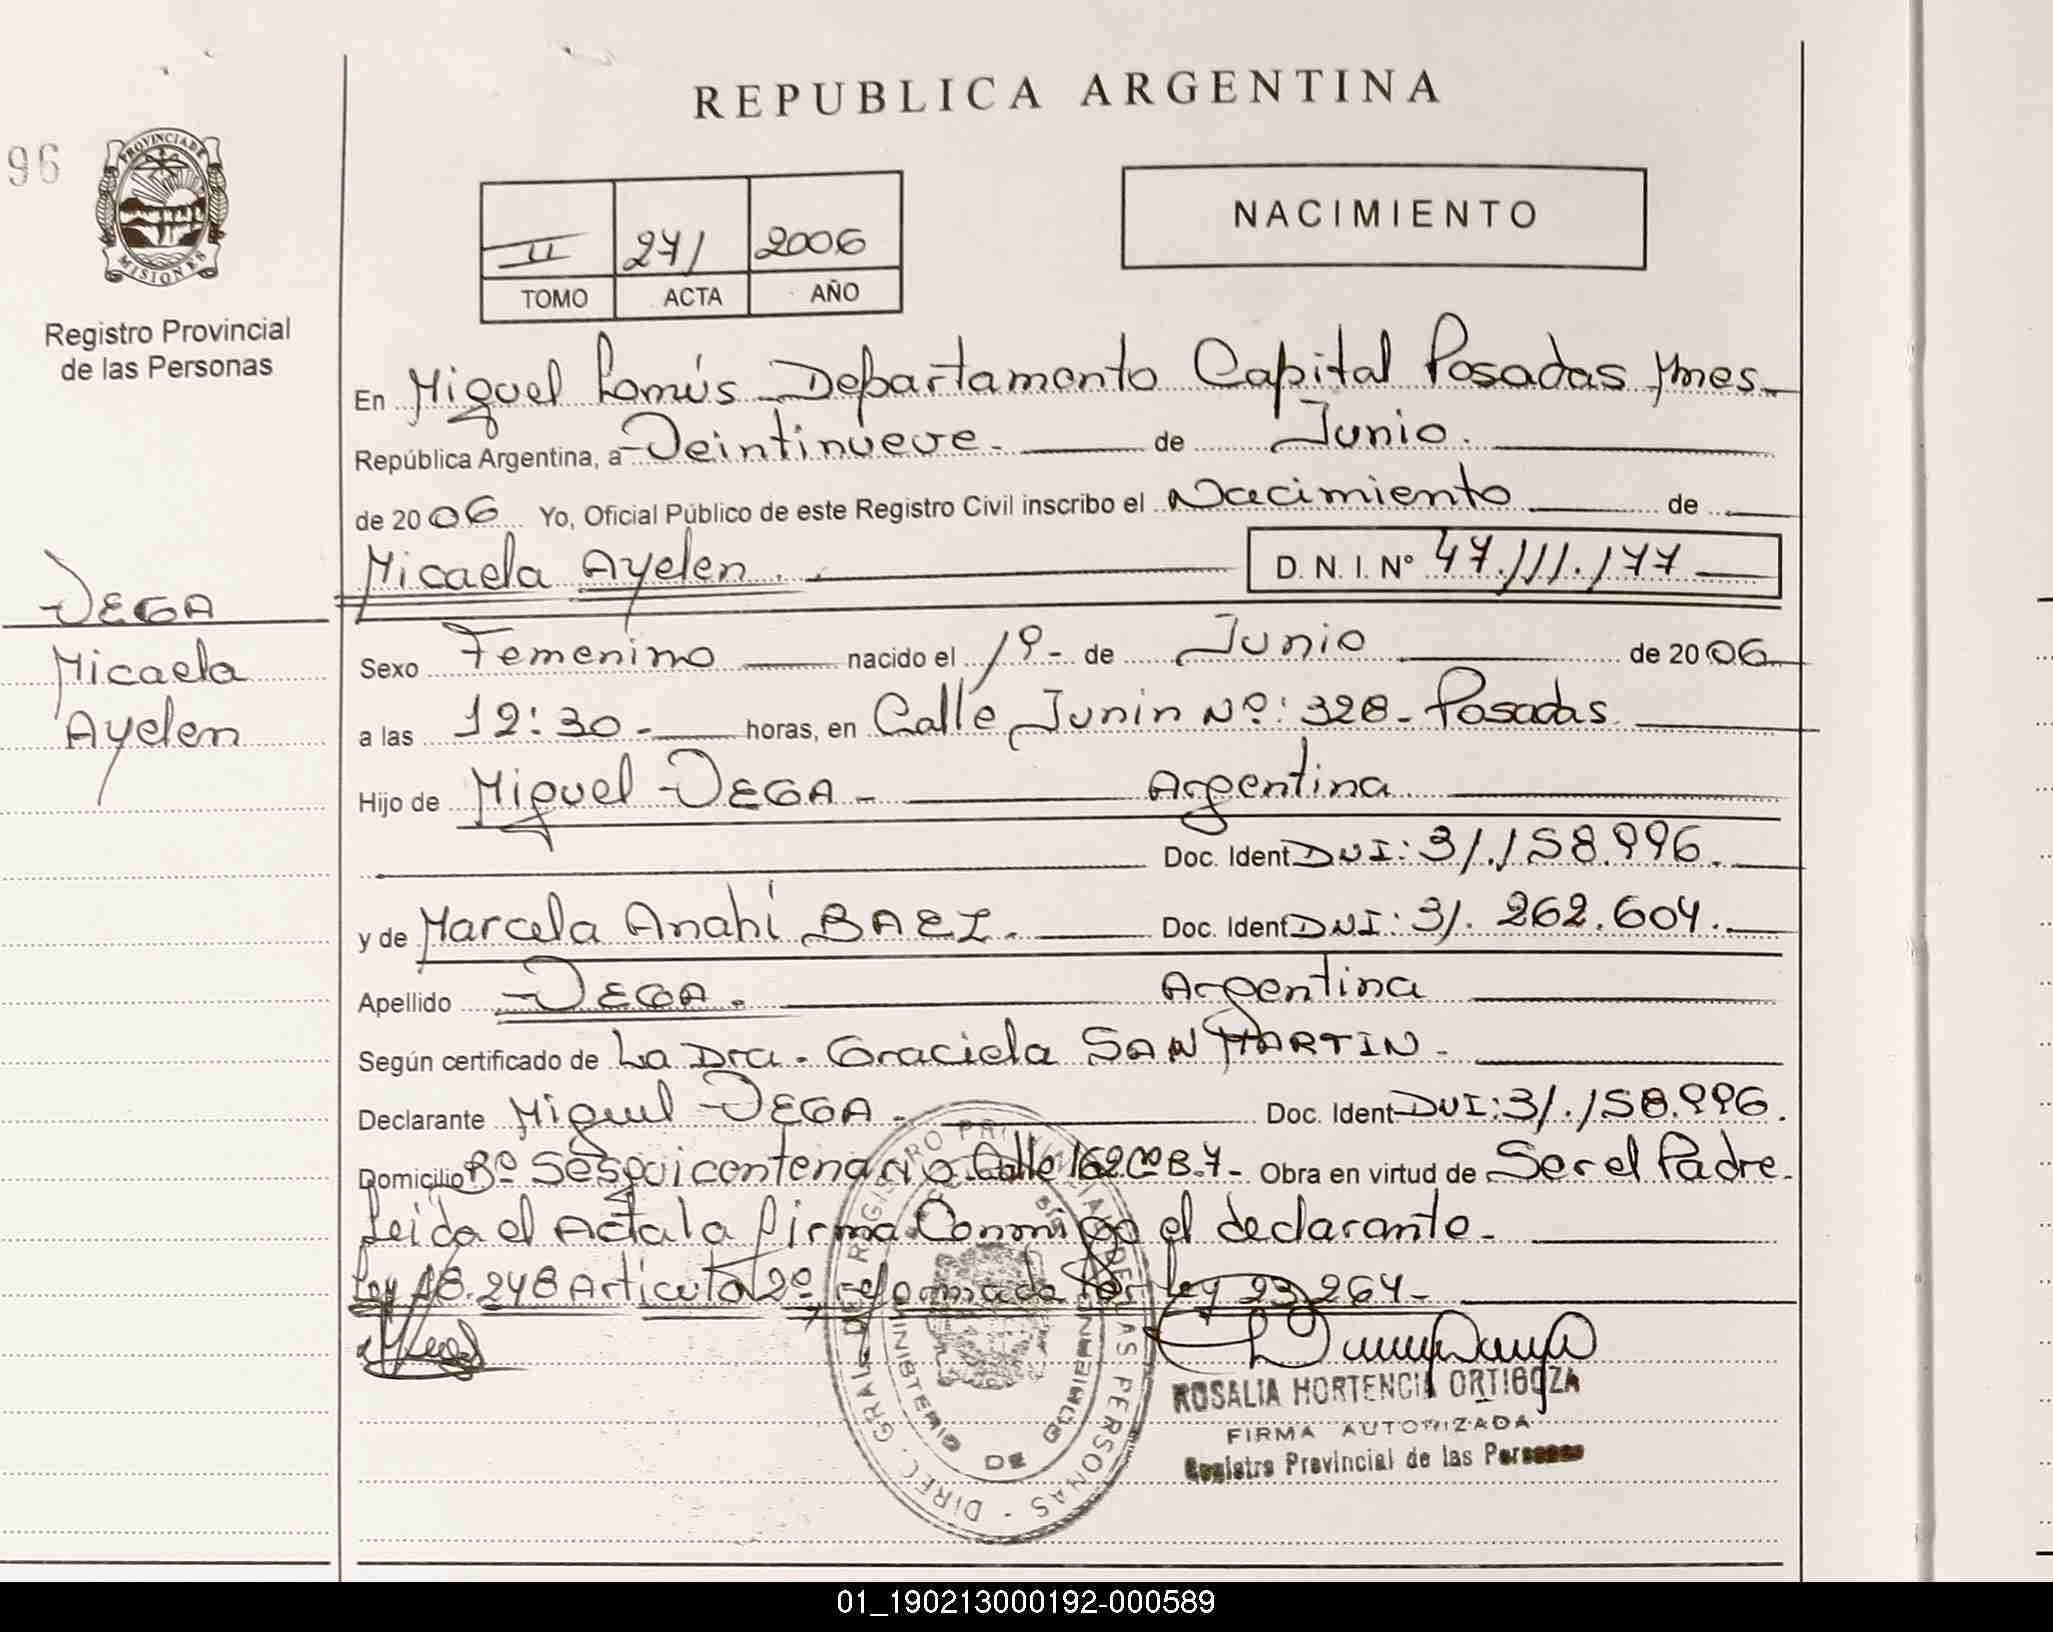 REPUBLICA ARGENTINA
96
PROVINCIA DE MISIONES
Registro Provincial
de las Personas
II 271 2006
TOMO ACTA AÑO
NACIMIENTO
En Miguel Lanús Departamento Capital Posadas Mnes
República Argentina, a Veintinueve. de Junio.
de 2006 Yo, Oficial Público de este Registro Civil inscribo el Nacimiento de
Micaela Ayelen. D. N. I. Nº 47.111.177
VEGA
Micaela
Ayelen
Sexo Femenino nacido el 1º- de Junio de 2006
a las 12:30- horas, en Calle Junin Nº: 328- Posadas
Hijo de Miguel VEGA- Argentina
Doc. Ident DNI: 31.158.996.
y de Marcela Anahí BAEZ. Doc. Ident DNI: 31.262.604.
Apellido VEGA. Argentina
Según certificado de La Dra. Graciela SAN MARTIN-
Declarante Miguel VEGA- Doc. Ident DNI: 31.158.996.
Domicilio Bº Sesquicentenario Calle 162 B.7- Obra en virtud de Ser el Padre-
Leida el Acta la firma Conmigo el declarante-
Ley 18.248 Articulo 2º reformada Por Ley 23264-
ROSALIA HORTENCIA ORTIGOZA
FIRMA AUTORIZADA
Registro Provincial de las Personas
DIREC. GRAL. DEL REGISTRO PROVINCIAL DE LAS PERSONAS -
MINISTERIO DE GOBIERNO
01_190213000192-000589